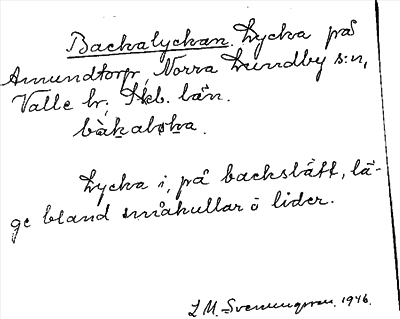 Backalyckan. Lycka på
Amundtorp, Norra Lundby s:n,
Valle hr, Skb. län.
bàkalyka.
Lycka i, på backslätt, lä-
ge bland småkullar o lider.
L M. Svennungsson. 1946.